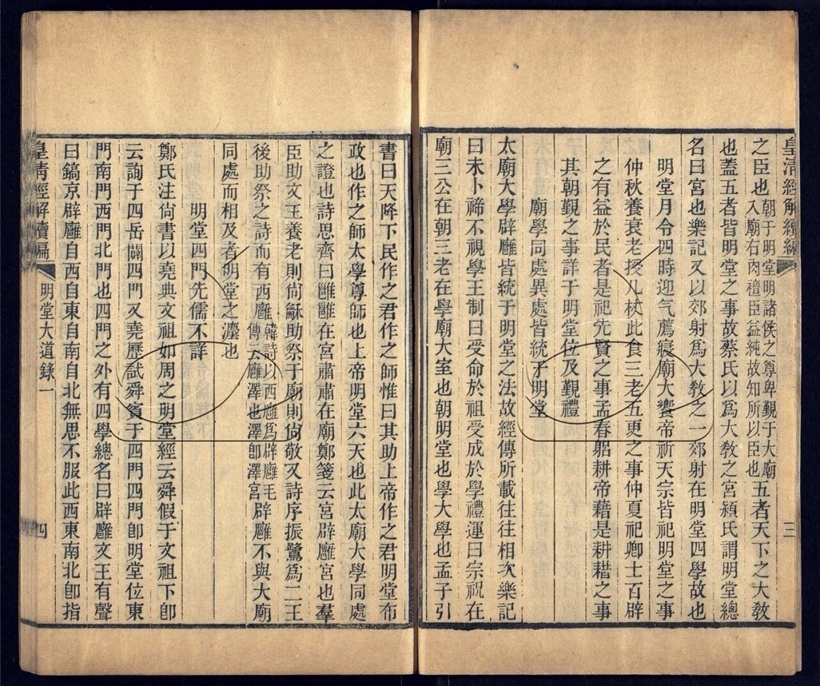 皇清經解續編
三
之臣也朝于明堂明諸侯之尊卑觀于大廟入廟右肉襢臣益純故知所以臣也五者天下之大敎
也蓋五者皆明堂之事故蔡氏以爲大敎之宮潁氏謂明堂總
名曰宮也樂記又以郊射爲大敎之一郊射在明堂四學故也
明堂月令四時迎气薦寢廟大饗帝祈天宗皆祀明堂之事
仲秋養衰老授几杖此食三老五更之事仲夏祀卿士百辟
之有益於民者是祀先賢之事孟春躬耕帝藉是耕耤之事
其朝覲之事詳于明堂位及覲禮
廟學同處異處皆統于明堂
太廟大學辟廱皆統于明堂之法故經傳所載往往相次樂記
曰未卜禘不視學王制曰受命於祖受成於學禮運曰宗祝在
廟三公在朝三老在學廟大室也朝明堂也學大學也孟子引
書曰天降下民作之君作之師惟曰其助上帝作之君明堂布
政也作之師太學尊師也上帝明堂六天也此太廟大學同處
之證也詩思齊曰雝雝在宮肅肅在廟鄭箋云宮辟廱宮也羣
臣助文王養老則尙龢助祭于廟則尙敬又詩序振鷺爲二王
後助祭之詩而有西廱韓詩以西廱爲辟廱毛傳云廱澤也澤卽澤宮辟廱不與大廟
同處而相及者明堂之灋也
明堂四門先儒不詳
鄭氏注尙書以堯典文祖如周之明堂經云舜假于文祖下卽
云詢于四岳闢四門又堯歷試舜賓于四門四門卽明堂位東
門南門西門北門也四門之外有四學總名曰辟廱文王有聲
曰鎬京辟廱自西自東自南自北無思不服此西東南北卽指
皇清經解續編
明堂大道錄一
四